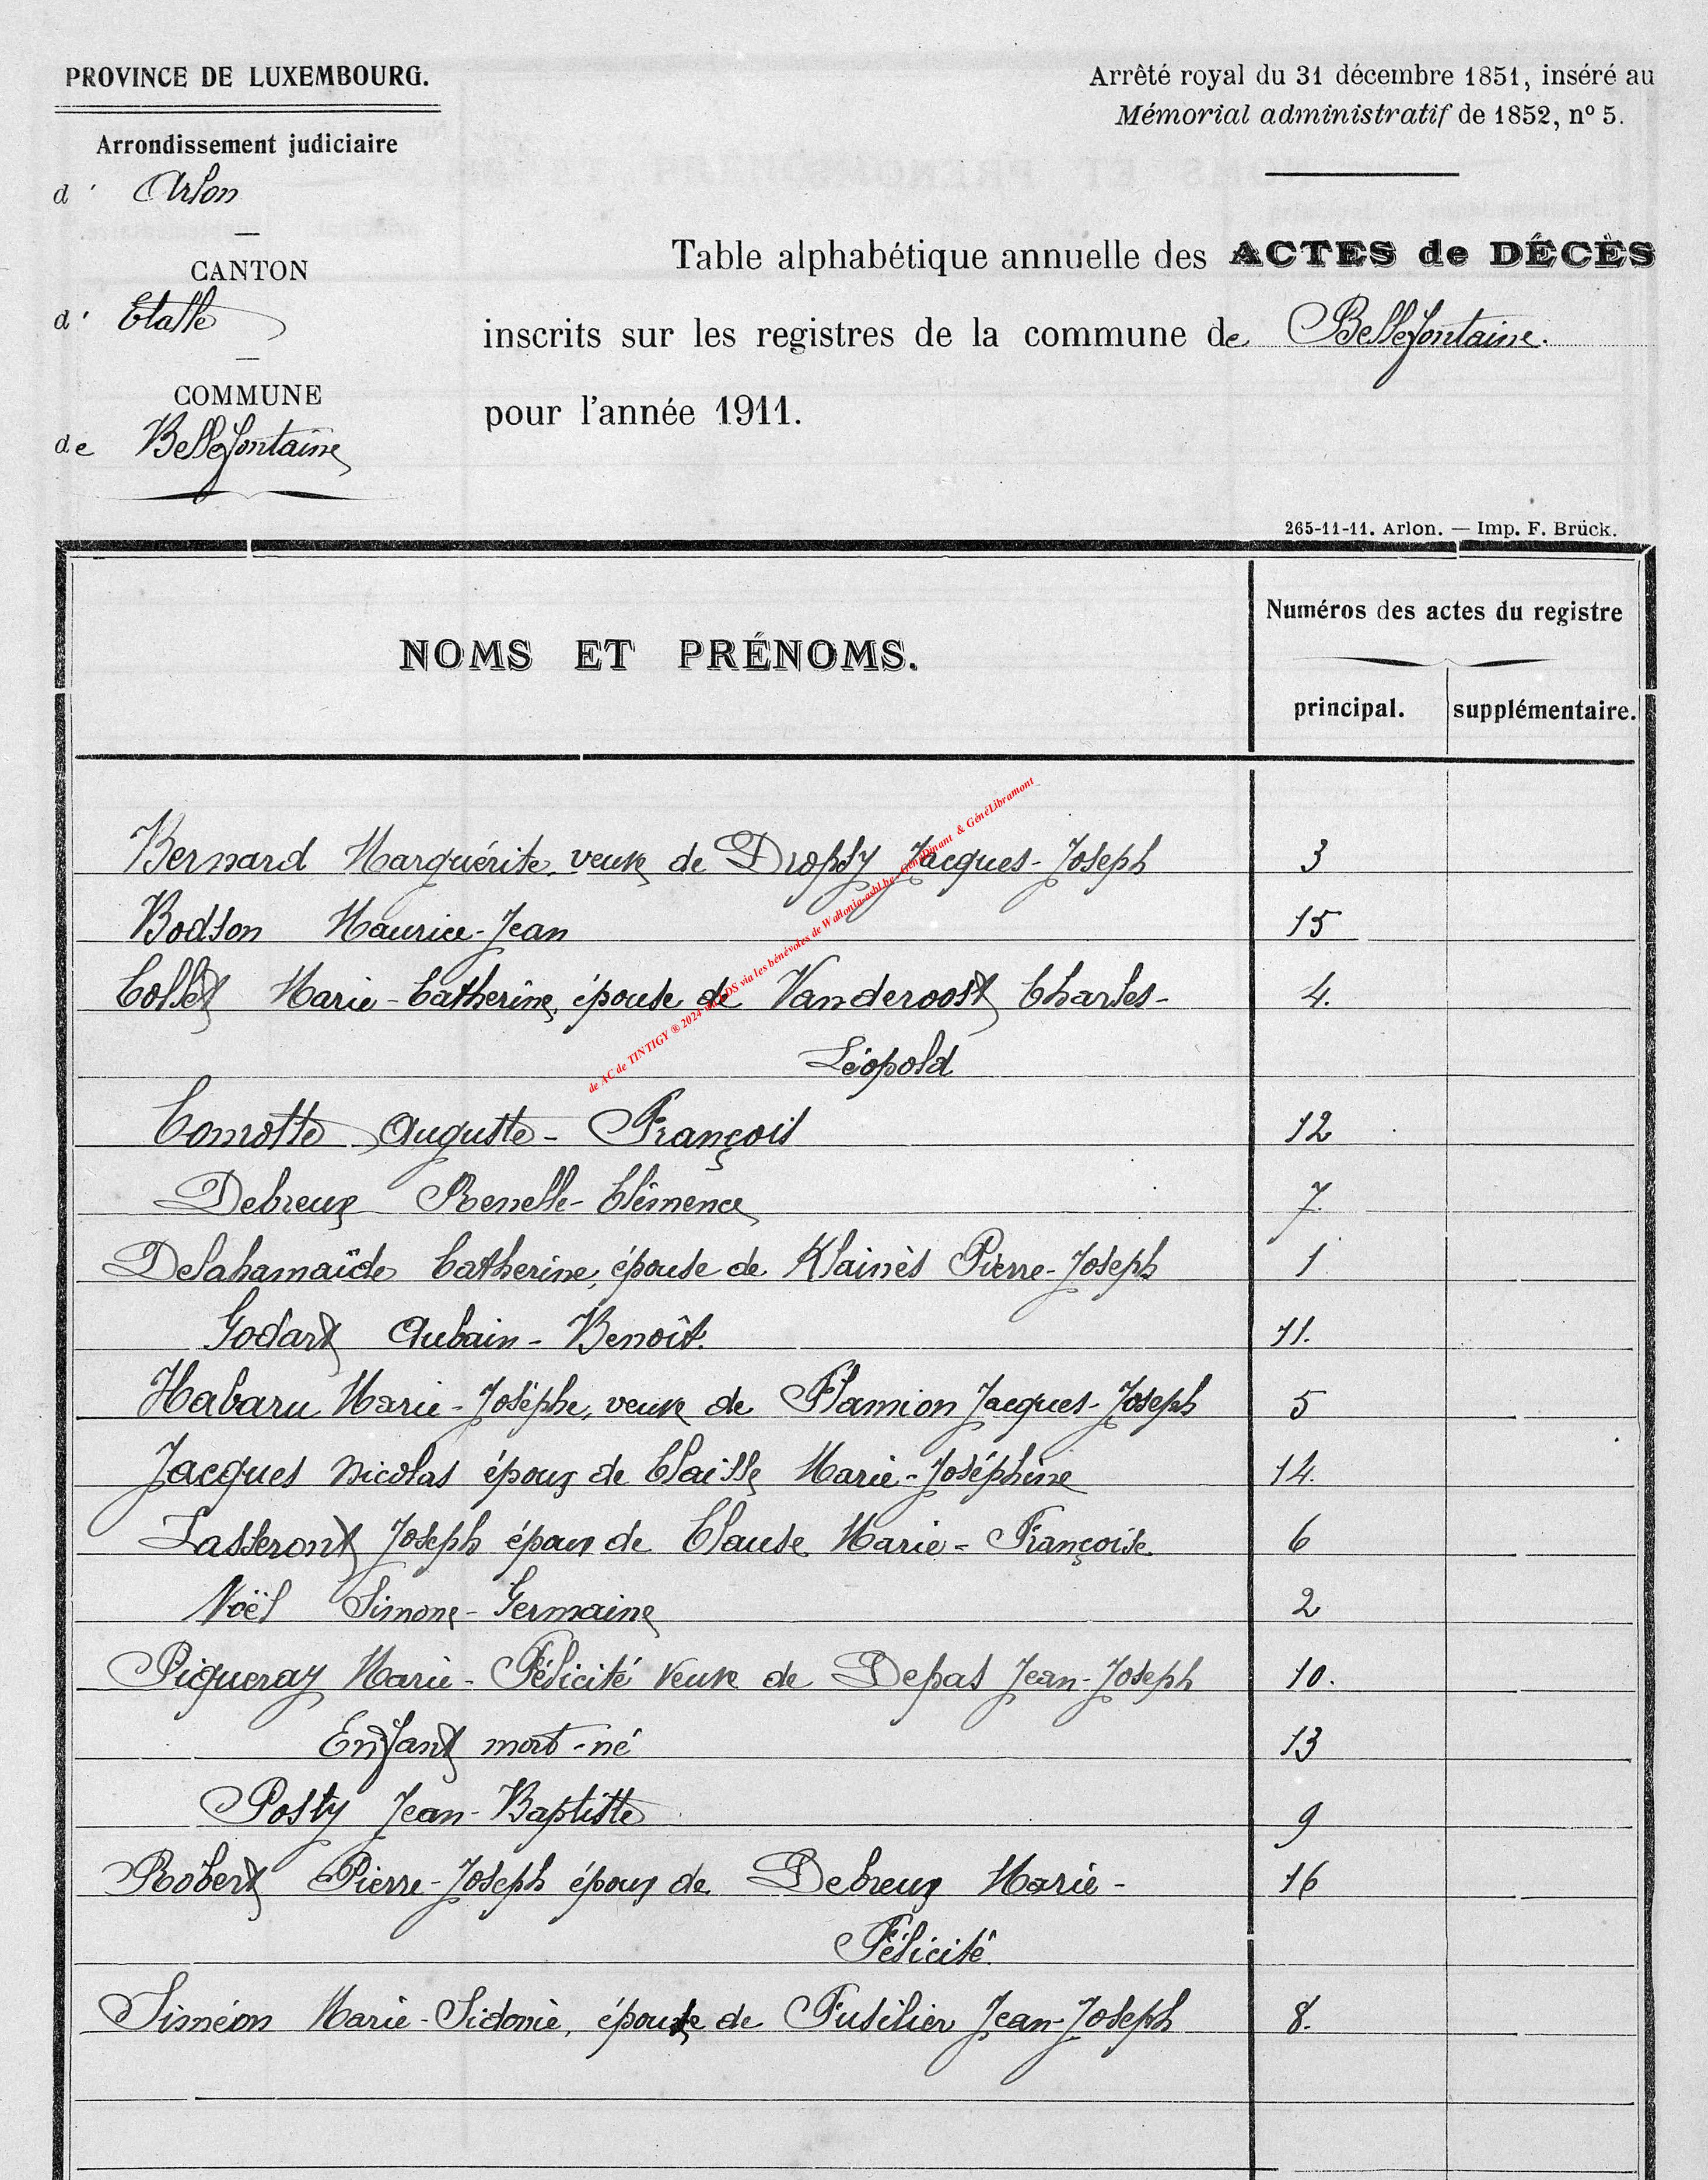 PROVINCE DE LUXEMBOURG.
Arrondissement judiciaire
d' Arlon
CANTON
d' Etalle
COMMUNE
de Bellefontaine
Arrêté royal du 31 décembre 1851, inséré au
Mémorial administratif de 1852, nº 5.
Table alphabétique annuelle des ACTES de DÉCÈS
inscrits sur les registres de la commune de Bellefontaine.
pour l'année 1911.
265-11-11. Arlon. — Imp. F. Brück.
NOMS ET PRÉNOMS.
Numéros des actes du registre
principal. supplémentaire.
Bernard Marguérite, veuve de Dropsy Jacques-Joseph 3
Bodson Maurice-Jean 15
Collet Marie-Catherine, épouse de Vanderoost Charles- 4.
Léopold
Comotte Auguste-François 12
Debreux Renelle-Clémence 7.
Delahamaïde Catherine, épouse de Klainès Pierre-Joseph 1
Godart Aubain-Benoît. 11.
Habaru Marie-Josèphe, veuve de Flamion Jacques-Joseph 5
Jacques Nicolas époux de Claisse Marie-Joséphine 14.
Lasseront Joseph époux de Clause Marie-Françoise 6
Noël Simone-Germaine 2
Piqueray Marie-Félicité veuve de Depas Jean-Joseph 10.
Enfant mort-né 13
Posty Jean-Baptiste 9
Robert Pierre-Joseph époux de Debreux Marie- 16
Félicité.
Siméon Marie-Sidonie, épouse de Fusilier Jean-Joseph 8.
de AC de TINTIGY ® 2024 via les bénévoles de Wallonia asbl.be - GénéDinant & GénéLibramont